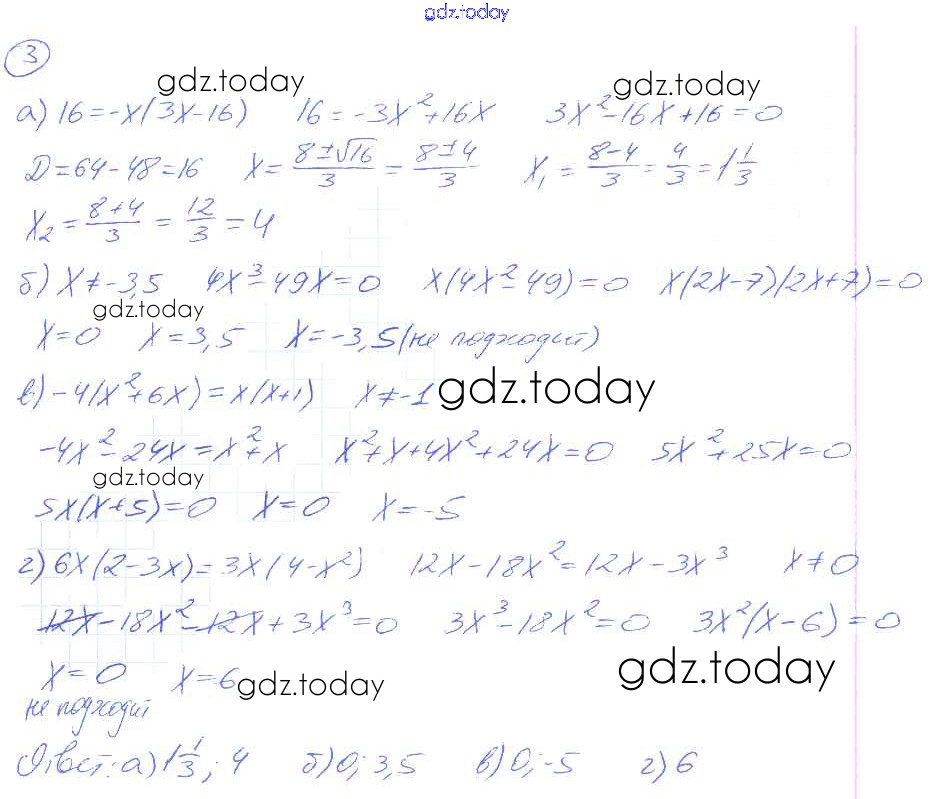 gdz.today
3
gdz.today gdz.today
а) 16=-x(3x-16) 16=-3x²+16x 3x²-16x+16=0
D=64-48=16 x=(8±√16)/3=(8±4)/3 x₁=(8-4)/3=4/3=1 1/3
x₂=(8+4)/3=12/3=4
б) x≠-3,5 4x³-49x=0 x(4x²-49)=0 x(2x-7)(2x+7)=0
gdz.today
x=0 x=3,5 x=-3,5 (не подходит)
в) -4(x²+6x)=x(x+1) x≠-1 gdz.today
-4x²-24x=x²+x x²+x+4x²+24x=0 5x²+25x=0
gdz.today
5x(x+5)=0 x=0 x=-5
г) 6x(2-3x)=3x(4-x²) 12x-18x²=12x-3x³ x≠0
12x-18x²-12x+3x³=0 3x³-18x²=0 3x²(x-6)=0
x=0 x=6 gdz.today gdz.today
не подходит
Ответ: а) 1 1/3; 4 б) 0; 3,5 в) 0; -5 г) 6